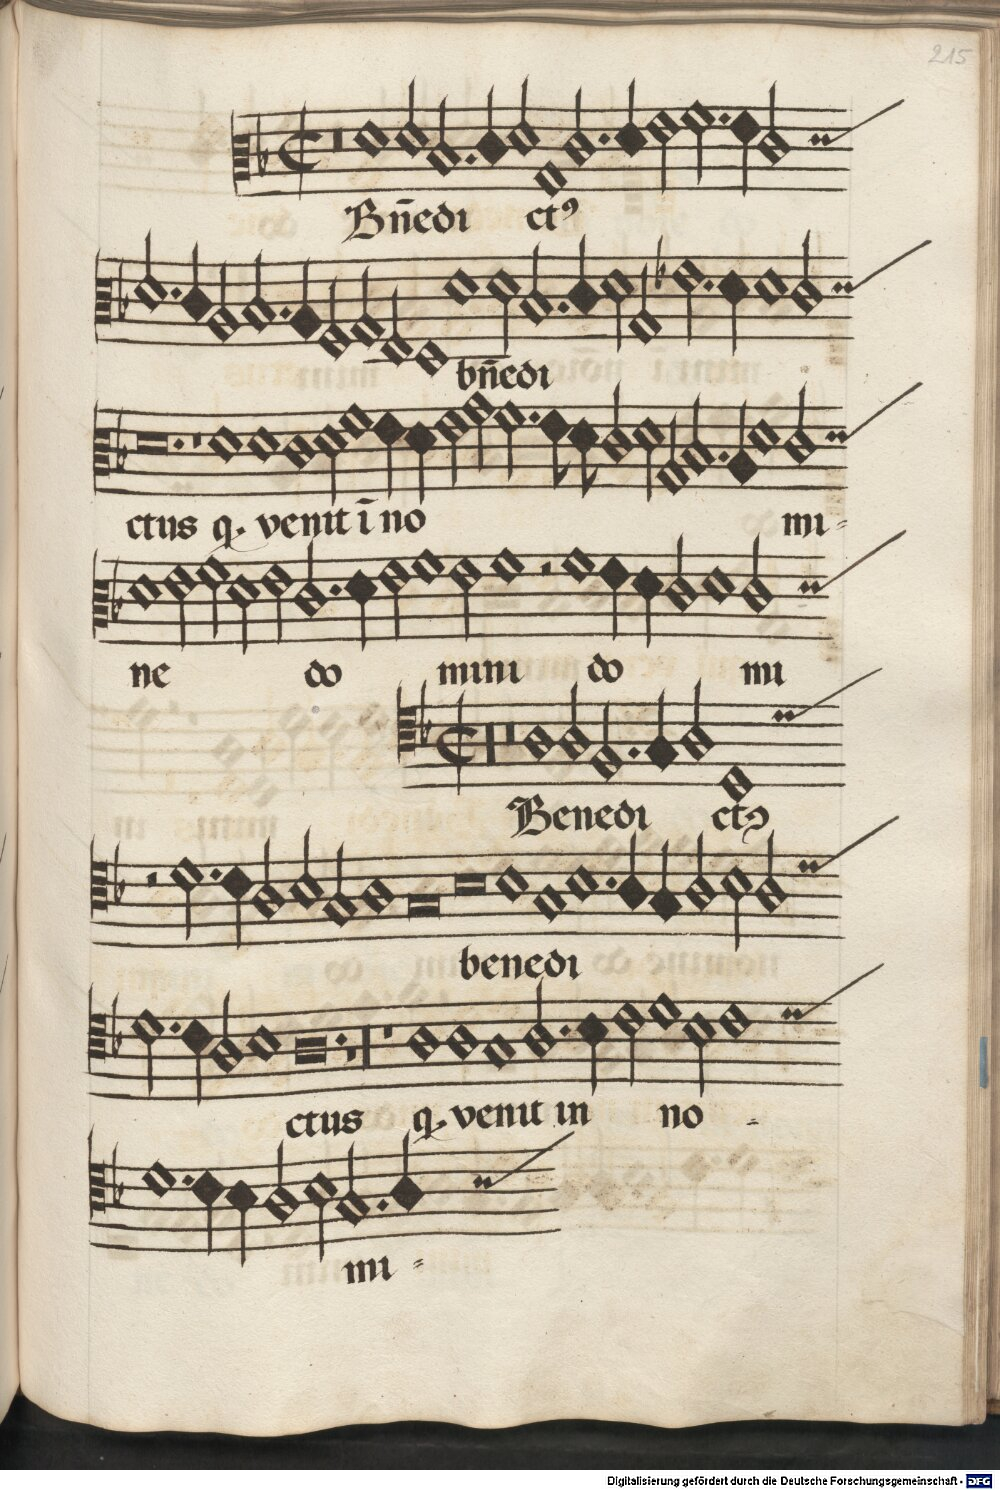 215
Bñedi ctꝰ
bñedi
ctus q. venit ī no mi=
ne do mini do mi
Benedi ctꝰ
benedi
ctus q. venit in no -
mi =
Digitalisierung gefördert durch die Deutsche Forschungsgemeinschaft - DFG